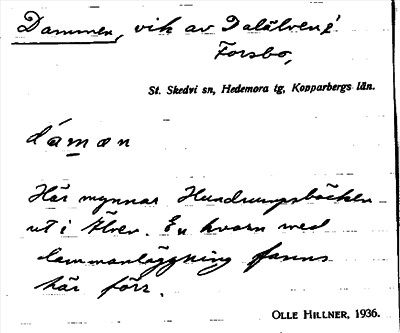 Dammen, vik av Dalälven i
Forsbo,
St. Skedvi sn, Hedemora tg, Kopparbergs län.
dámən
Här mynnar Hundrungsbäcken
ut i älven. En kvarn med
dammanläggning fanns
här förr.
OLLE HILLNER, 1936.